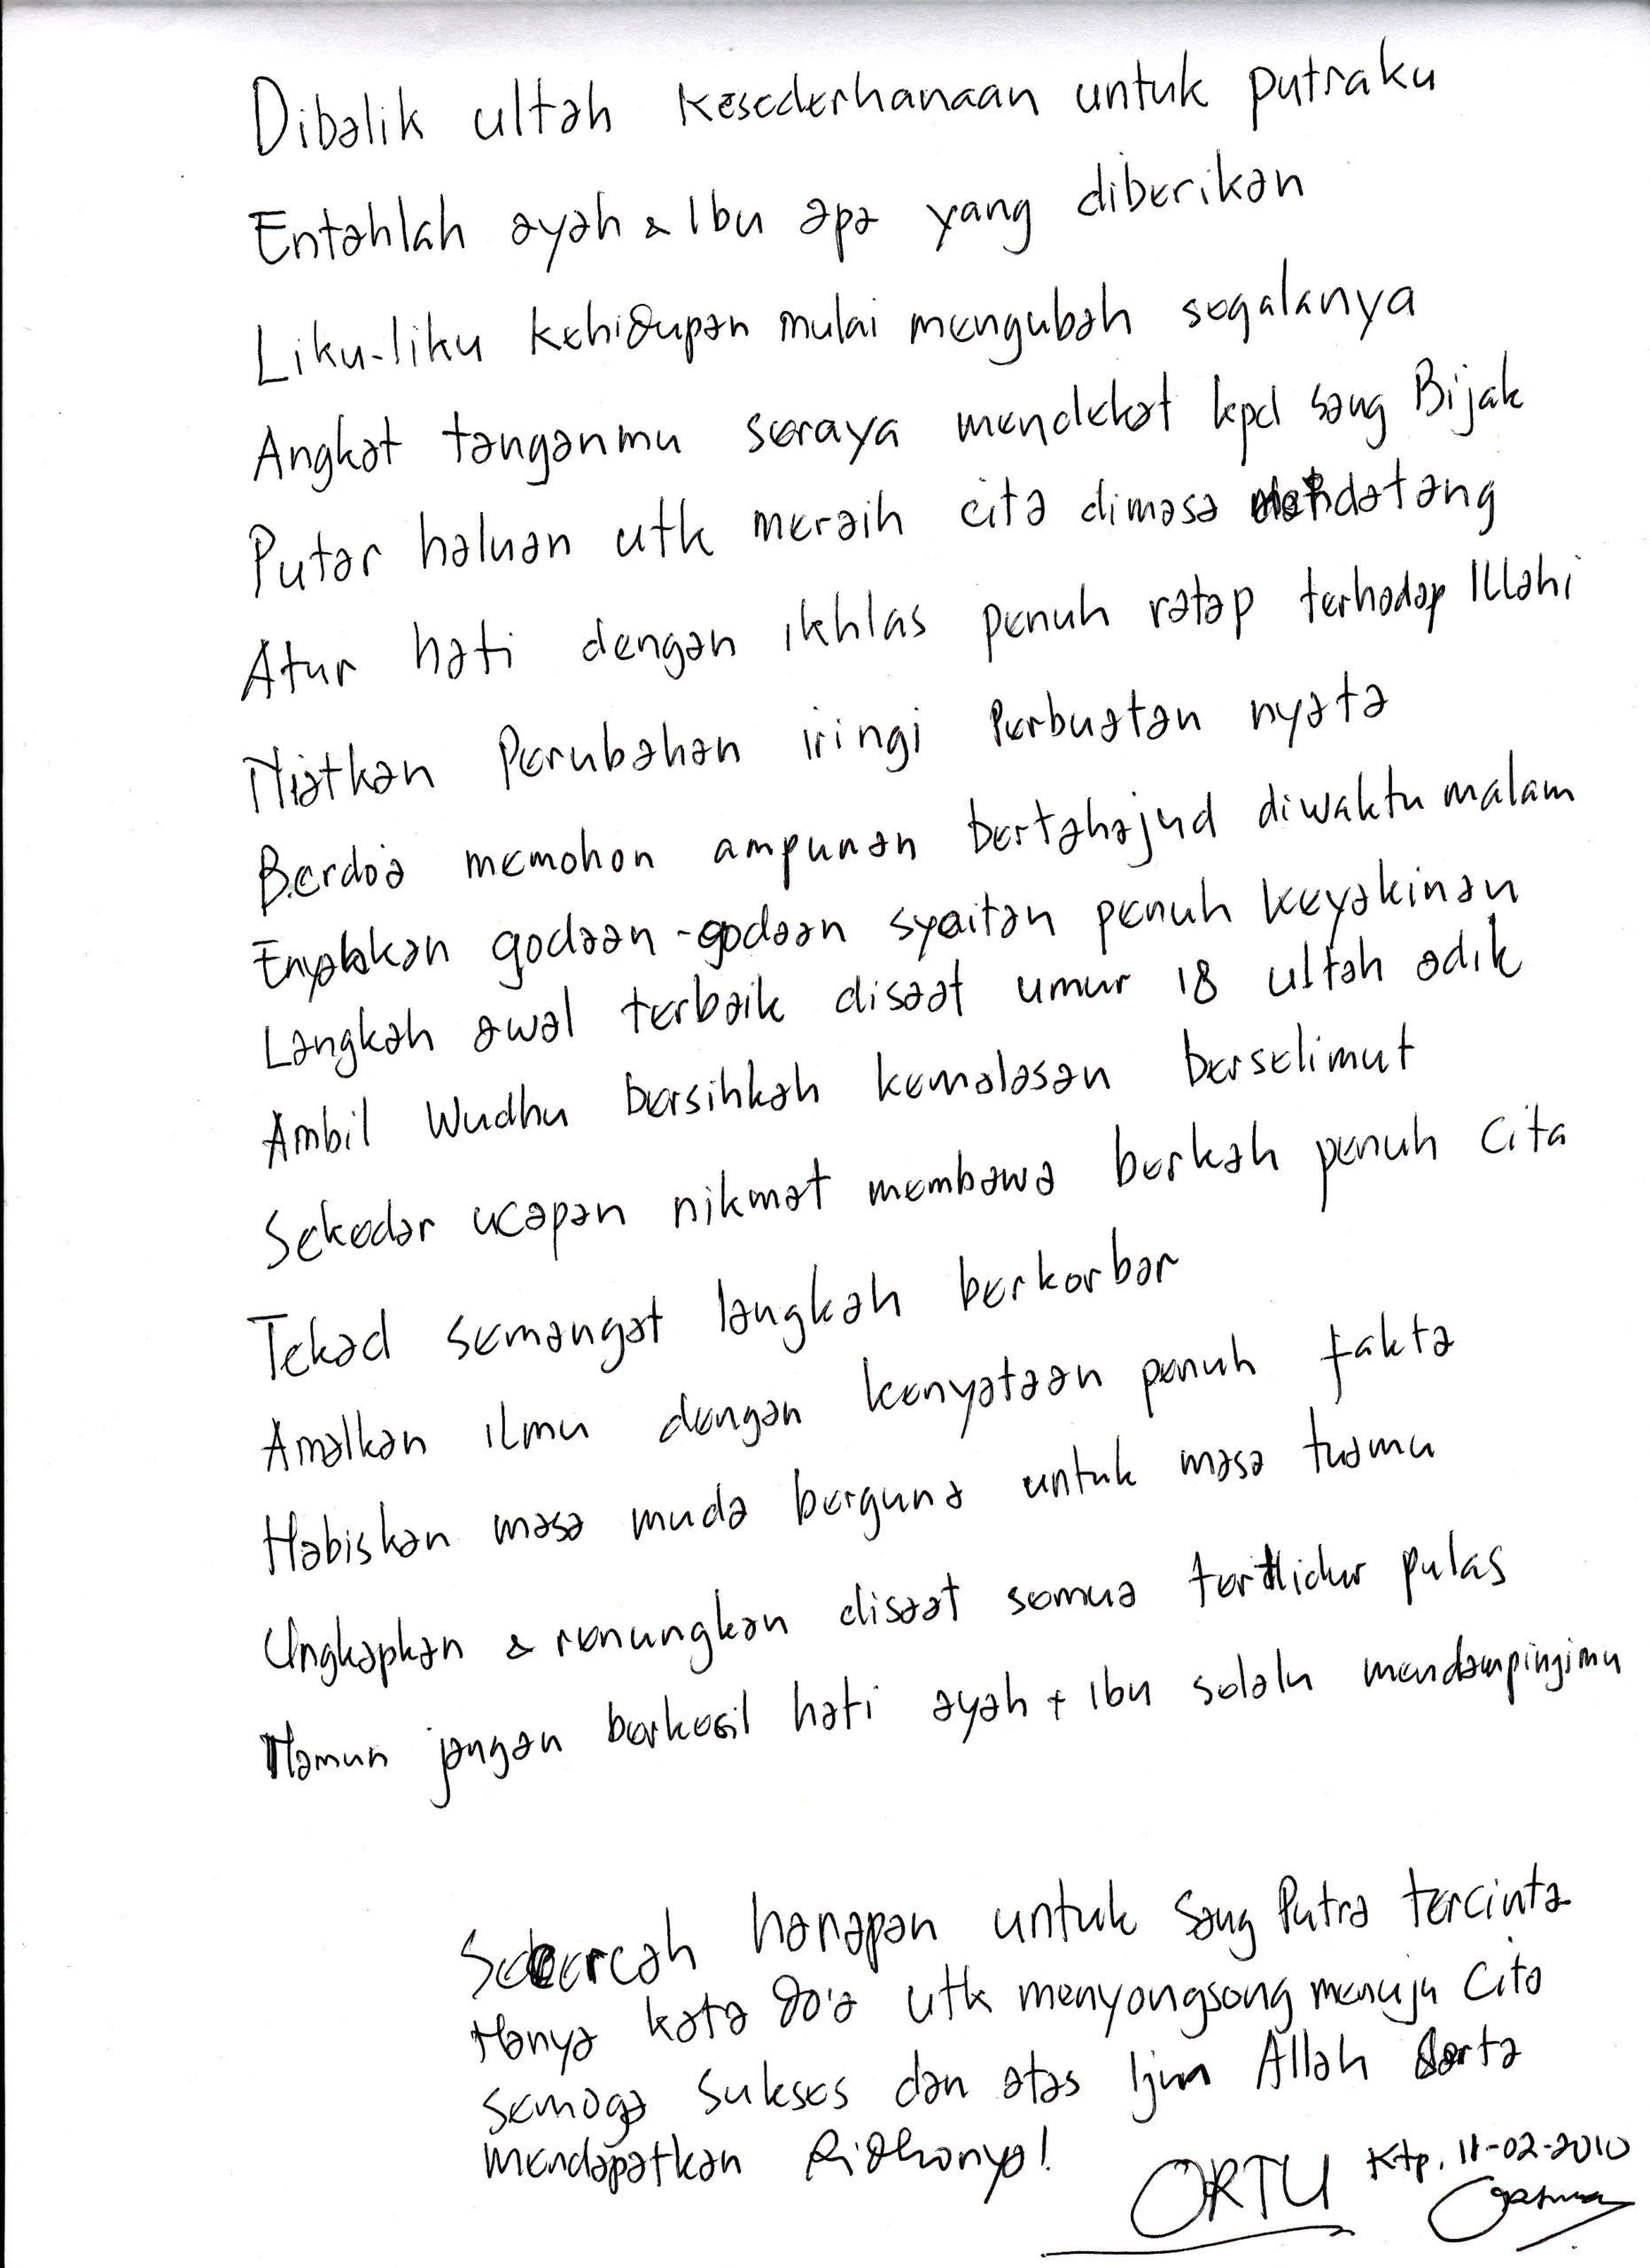 Dibalik ultah Kesederhanaan untuk putraku
Entahlah ayah & Ibu apa yang diberikan
Liku-liku kehidupan mulai mengubah segalanya
Angkat tanganmu seraya mendekat kpd sang Bijak
Putar haluan utk meraih cita dimasa mendatang
Atur hati dengan ikhlas penuh ratap terhadap Illahi
Niatkan Perubahan iringi Perbuatan nyata
Berdo'a memohon ampunan bertahajud diwaktu malam
Enyahkan godaan-godaan syaitan penuh keyakinan
Langkah awal terbaik disaat umur 18 ultah adik
Ambil Wudhu bersihkah kemalasan berselimut
Sekedar ucapan nikmat membawa berkah penuh cita
Tekad semangat langkah berkorbar
Amalkan ilmu dengan kenyataan penuh fakta
Habiskan masa muda berguna untuk masa tuamu
Ungkapkan & renungkan disaat semua tertidur pulas
Namun jangan berkecil hati ayah + Ibu selalu mendampingimu
Sebercah harapan untuk Sang Putra tercinta
Hanya kata do'a utk menyongsong menuju Cita
semoga sukses dan atas Ijin Allah serta
mendapatkan Ridhonya!
ORTU Ktp, 11-02-2010